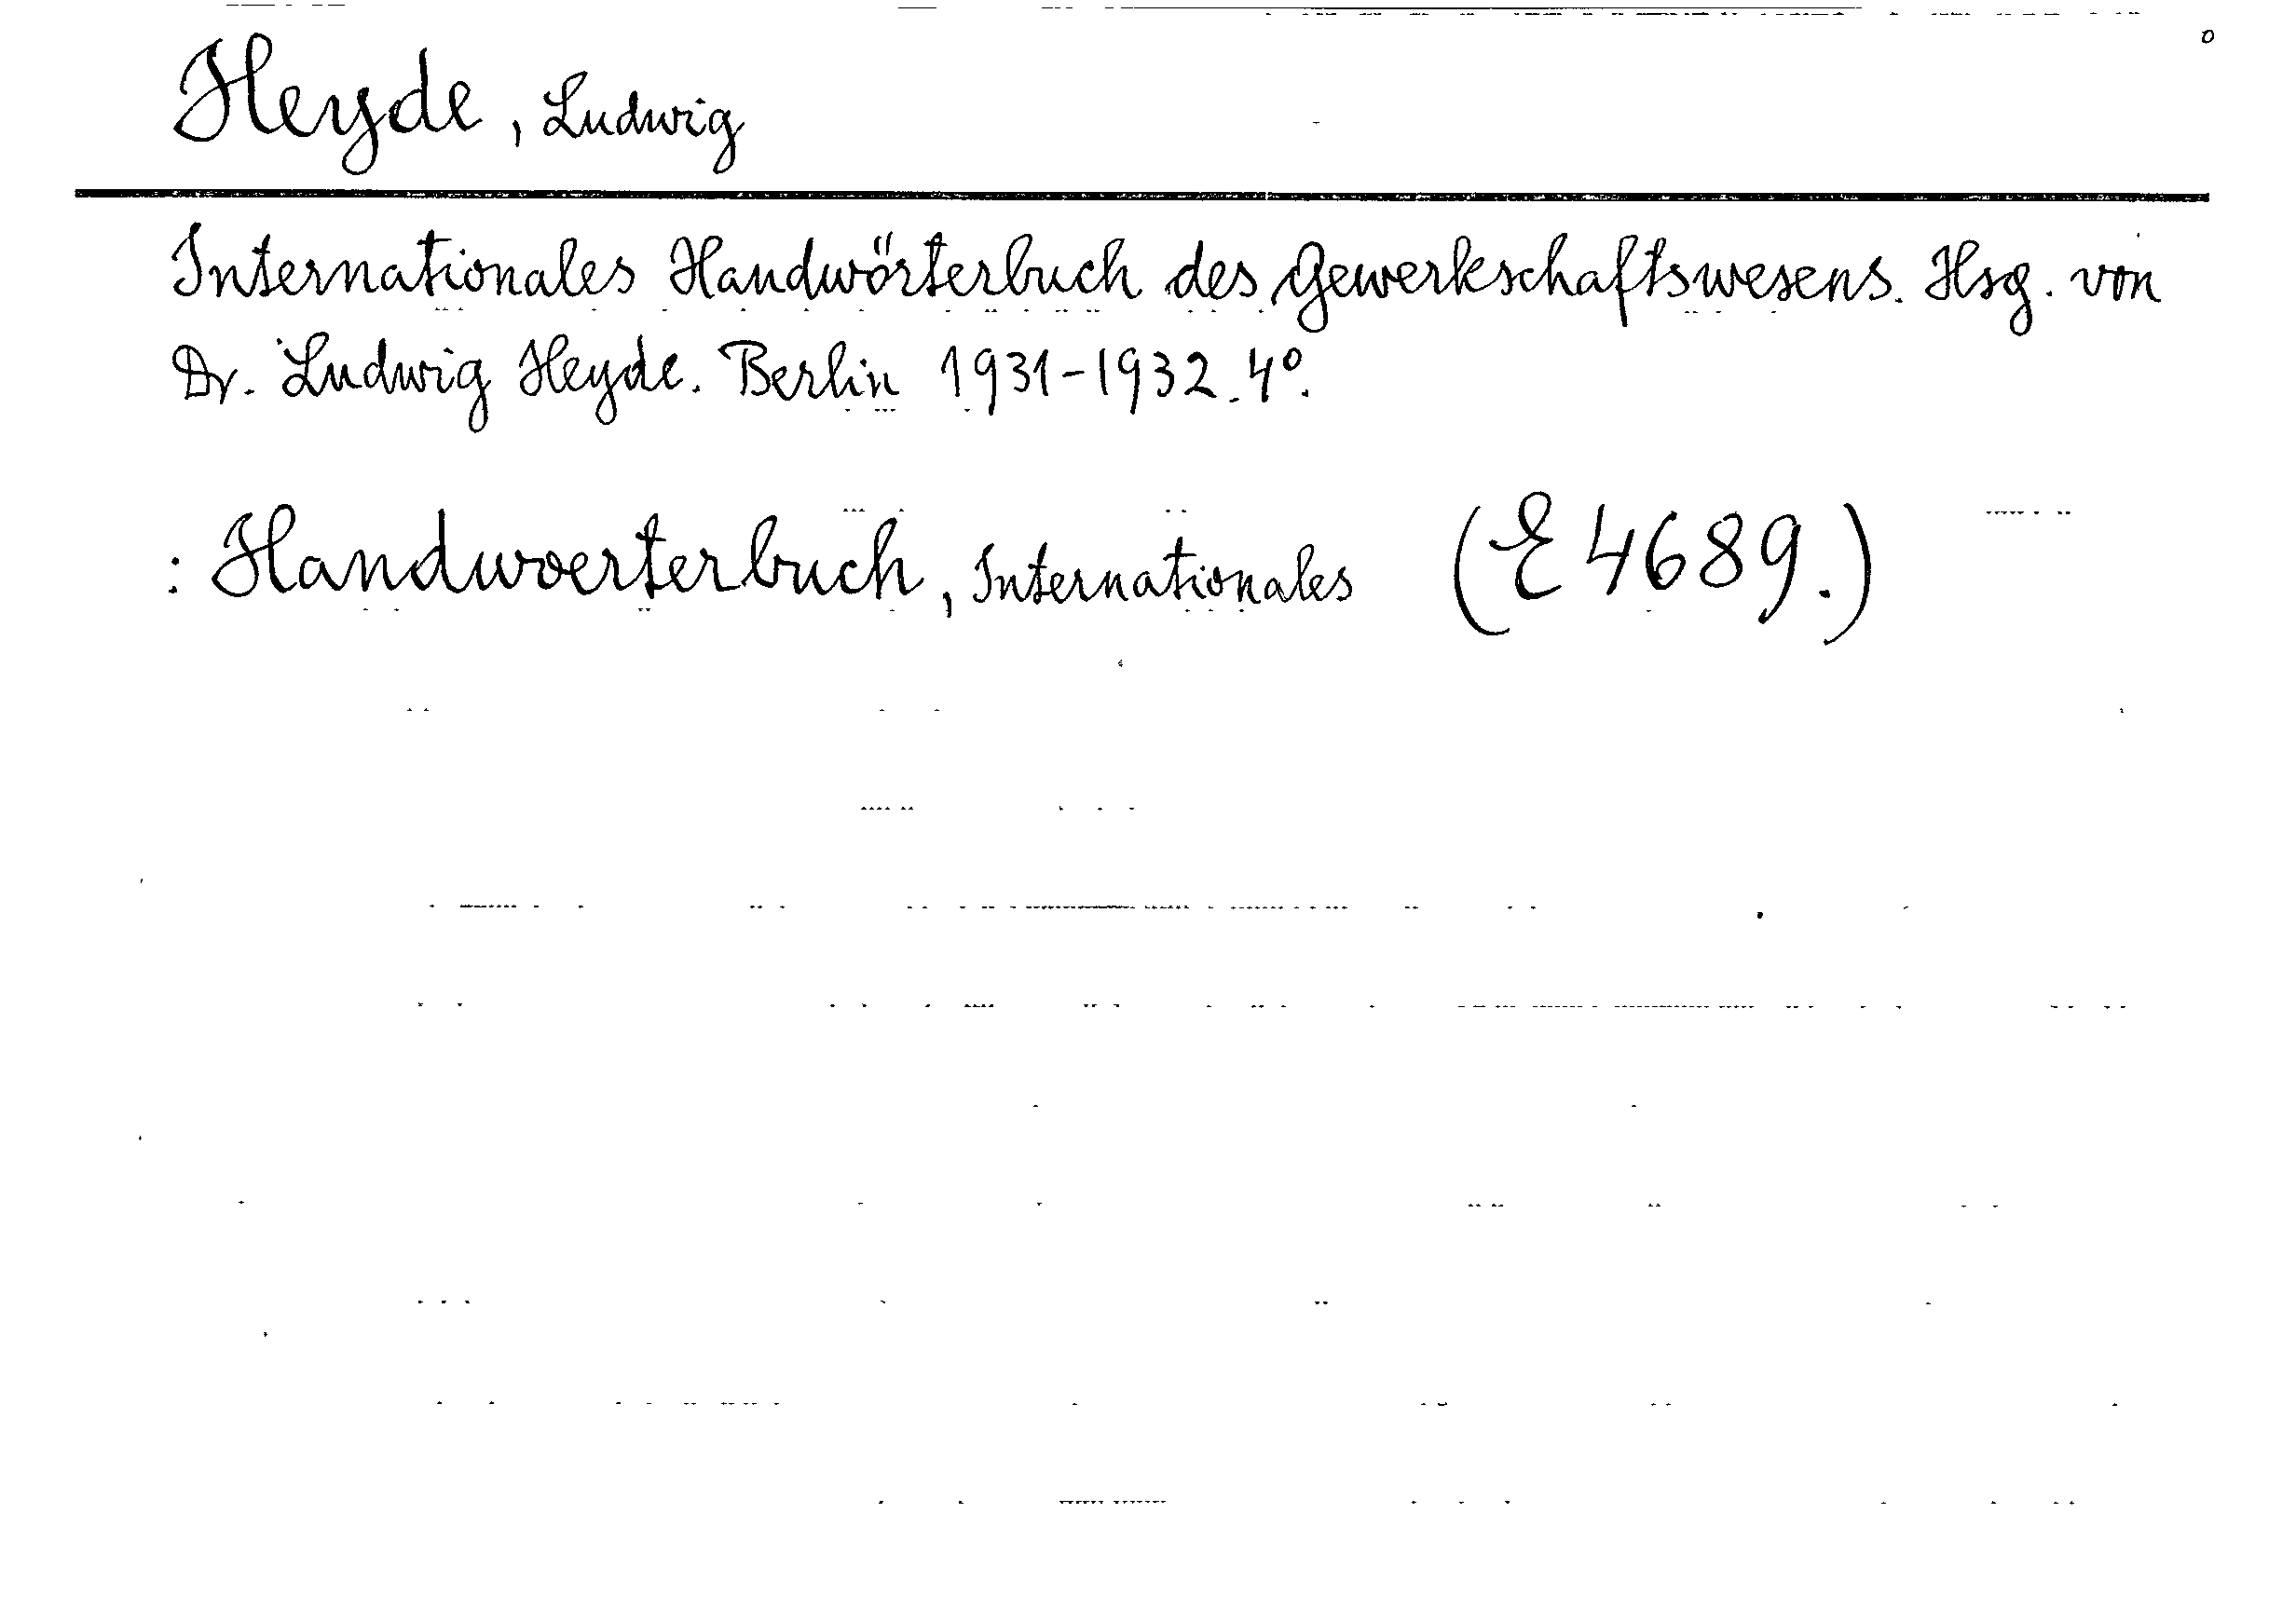 Heyde, Ludwig
Internationales Handwörterbuch des Gewerkschaftswesens. Hsg. von
Dr. Ludwig Heyde. Berlin 1931-1932. 4°.
: Handwoerterbuch, Internationales (E 4689.)